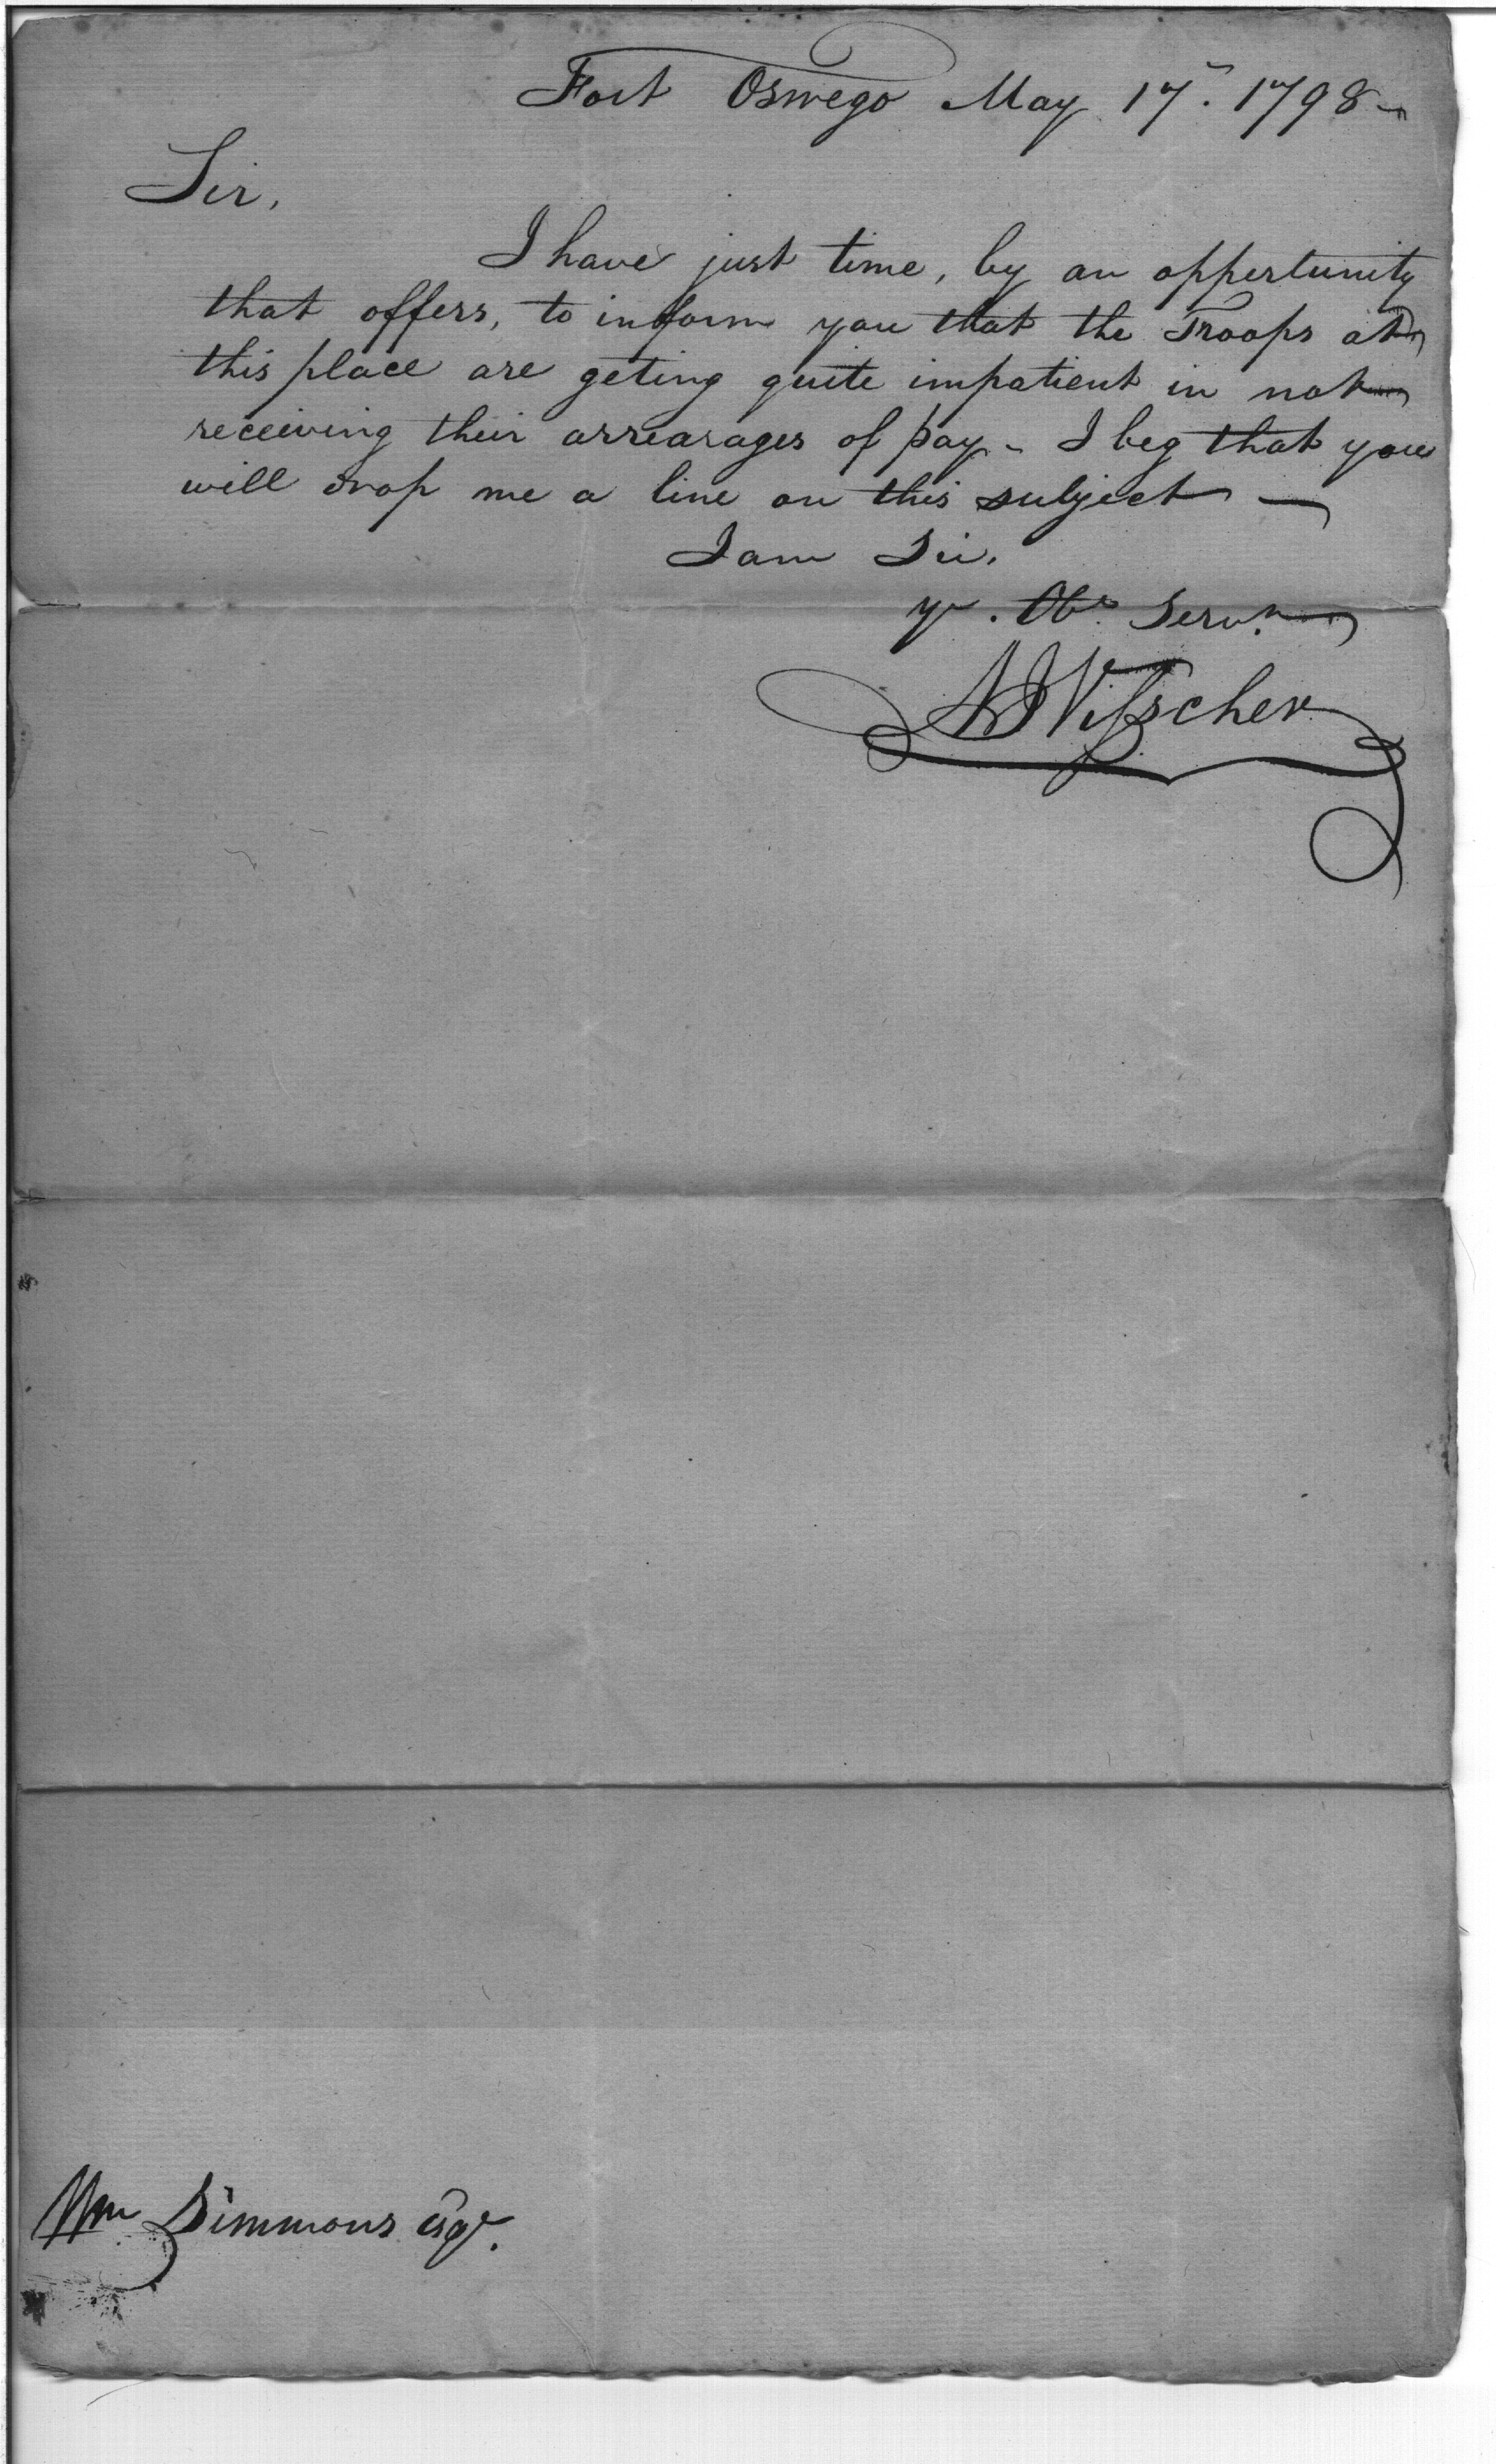 Fort Oswego May 17. 1798
Sir,
I have just time, by an oppertunity
that offers, to inform you that the Troops at
this place are geting quite impatient in not
receiving their arrearages of pay - I beg that you
will drop me a line on this subject —
I am Sir.
yr. Obt. Servt.
N J Visscher
Wm Simmons Esqr.